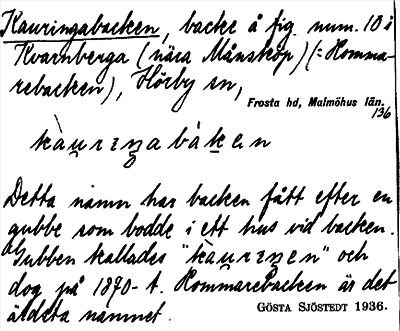 Kauringabacken, backe å fig. num. 10 i
Kvarnberga (nära Månskop) (= Homma-
rebacken), Hörby sn,
Frosta hd, Malmöhus län.
136
kàu̯rɪŋabákən
Detta namn har backen fått efter en
gubbe som bodde i ett hus vid backen.
Gubben kallades "kàu̯rɪŋen" och
dog på 1870-t. Hommarebacken är det
äldsta namnet.
GÖSTA SJÖSTEDT 1936.